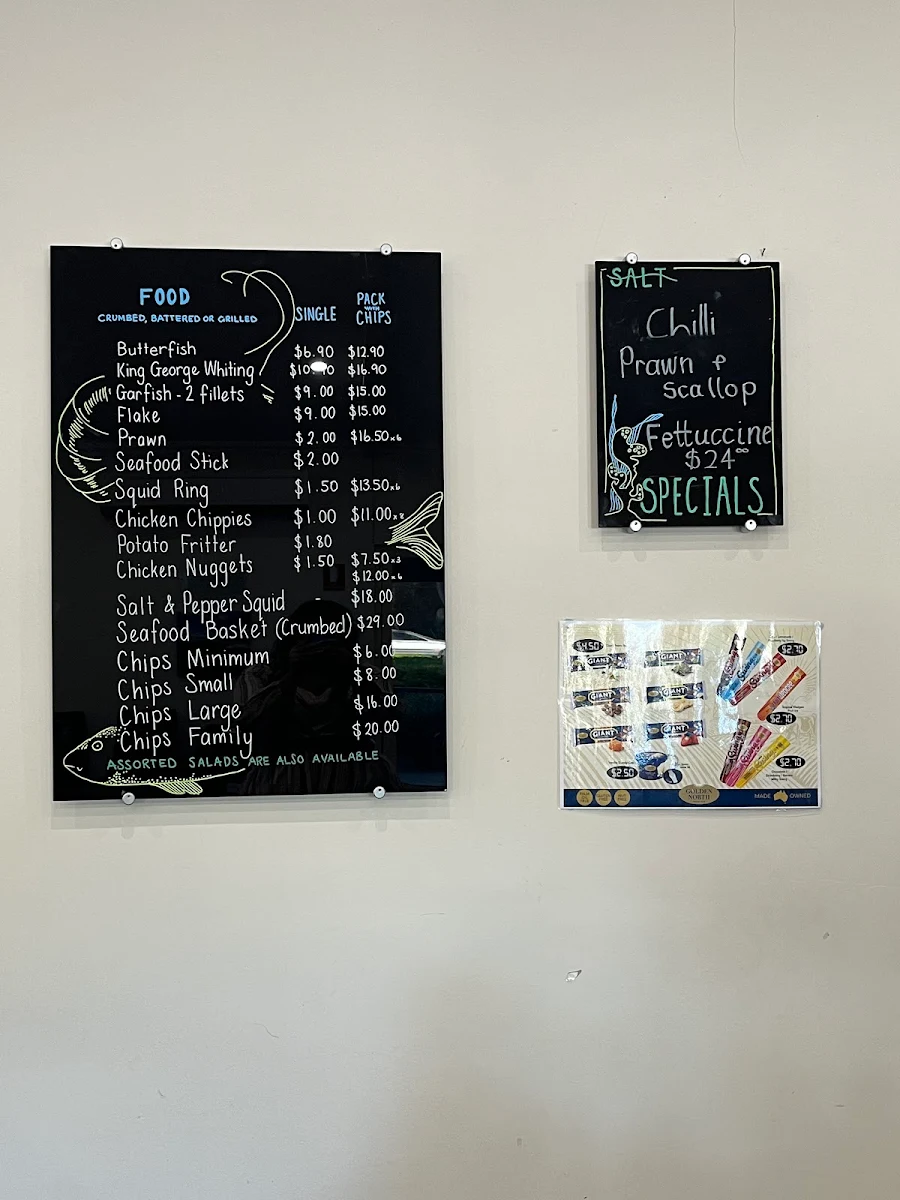 FOOD
CRUMBED, BATTERED OR GRILLED
SINGLE
PACK
WITH
CHIPS
Butterfish $6.90 $12.90
King George Whiting $16.90
Garfish - 2 fillets $9.00 $15.00
Flake $9.00 $15.00
Prawn $2.00 $16.50 x6
Seafood Stick $2.00
Squid Ring $1.50 $13.50 x6
Chicken Chippies $1.00 $11.00 x8
Potato Fritter $1.80
Chicken Nuggets $1.50 $7.50 x3
$12.00 x6
Salt & Pepper Squid - $18.00
Seafood Basket (Crumbed) $29.00
Chips Minimum $6.00
Chips Small $8.00
Chips Large $16.00
Chips Family $20.00
ASSORTED SALADS ARE ALSO AVAILABLE
SALT
Chilli
Prawn &
Scallop
Fettuccine
$24⁰⁰
SPECIALS
$4.50
GIANT
GIANT
GIANT
GIANT
GIANT
GIANT
$2.70
$2.70
$2.70
$2.50
GOLDEN
NORTH
MADE OWNED